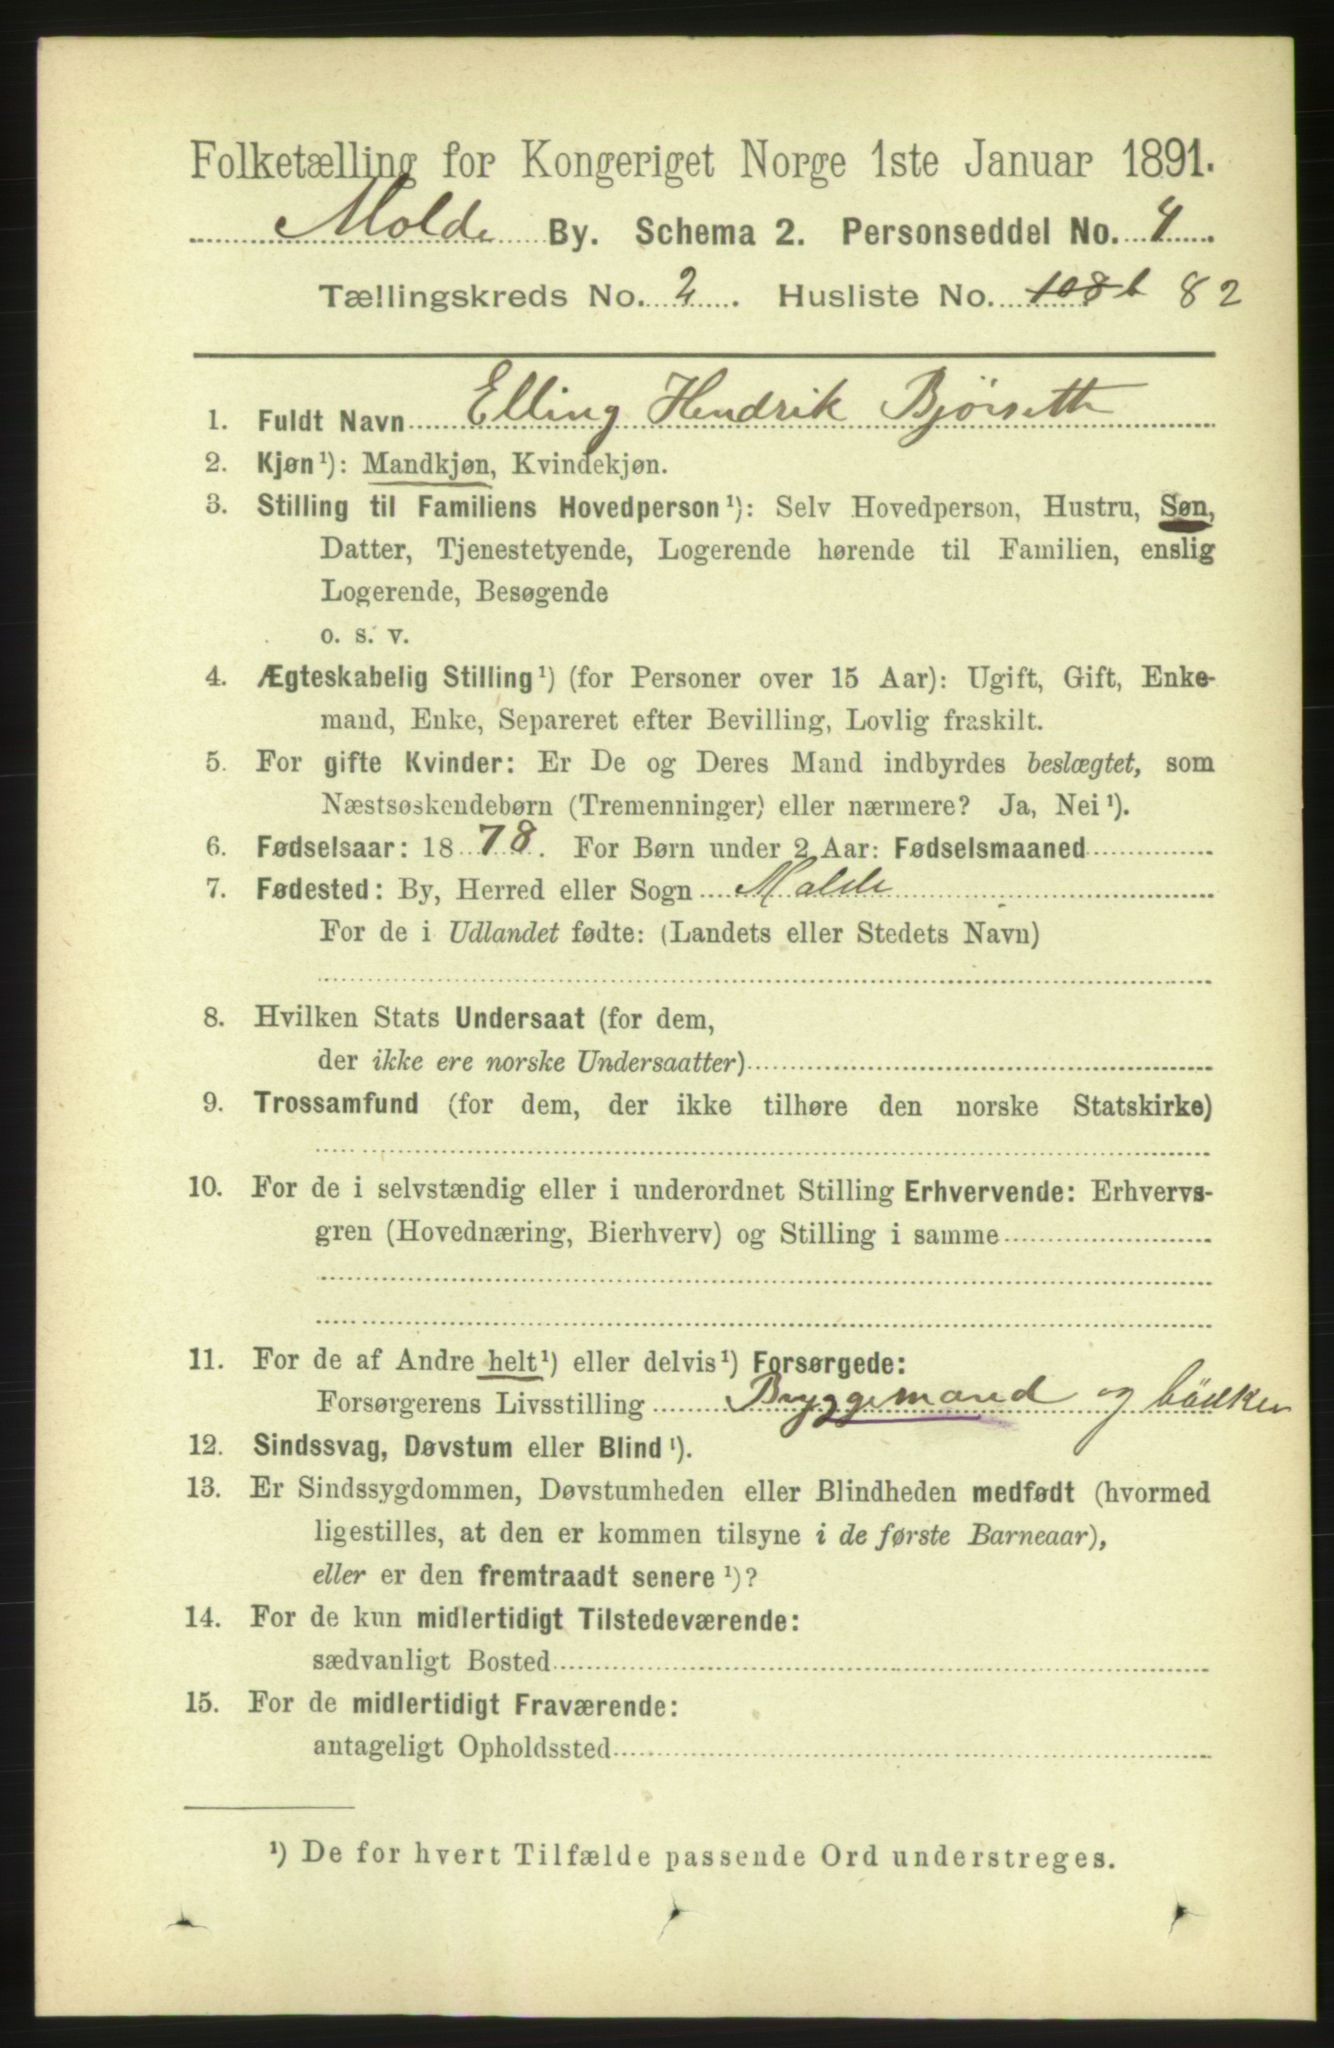 Folketælling for Kongeriget Norge 1ste Januar 1891.
Molde By. Schema 2. Personseddel No. 4
Tællingskreds No. 2. Husliste No. 108b 82
1. Fuldt Navn Elling Hendrik Bjørseth
2. Kjøn¹): Mandkjøn, Kvindekjøn.
3. Stilling til Familiens Hovedperson¹): Selv Hovedperson, Hustru, Søn,
Datter, Tjenestetyende, Logerende hørende til Familien, enslig
Logerende, Besøgende
o. s. v.
4. Ægteskabelig Stilling¹) (for Personer over 15 Aar): Ugift, Gift, Enke-
mand, Enke, Separeret efter Bevilling, Lovlig fraskilt.
5. For gifte Kvinder: Er De og Deres Mand indbyrdes beslægtet, som
Næstsøskendebørn (Tremenninger) eller nærmere? Ja, Nei¹).
6. Fødselsaar: 1878. For Børn under 2 Aar: Fødselsmaaned
7. Fødested: By, Herred eller Sogn Molde
For de i Udlandet fødte: (Landets eller Stedets Navn)
8. Hvilken Stats Undersaat (for dem,
der ikke ere norske Undersaatter)
9. Trossamfund (for dem, der ikke tilhøre den norske Statskirke)
10. For de i selvstændig eller i underordnet Stilling Erhvervende: Erhvervs-
gren (Hovednæring, Bierhverv) og Stilling i samme
11. For de af Andre helt¹) eller delvis¹) Forsørgede:
Forsørgerens Livsstilling Bryggemand og bödker
12. Sindssvag, Døvstum eller Blind¹).
13. Er Sindssygdommen, Døvstumheden eller Blindheden medfødt (hvormed
ligestilles, at den er kommen tilsyne i de første Barneaar),
eller er den fremtraadt senere¹)?
14. For de kun midlertidigt Tilstedeværende:
sædvanligt Bosted
15. For de midlertidigt Fraværende:
antageligt Opholdssted
¹) De for hvert Tilfælde passende Ord understreges.